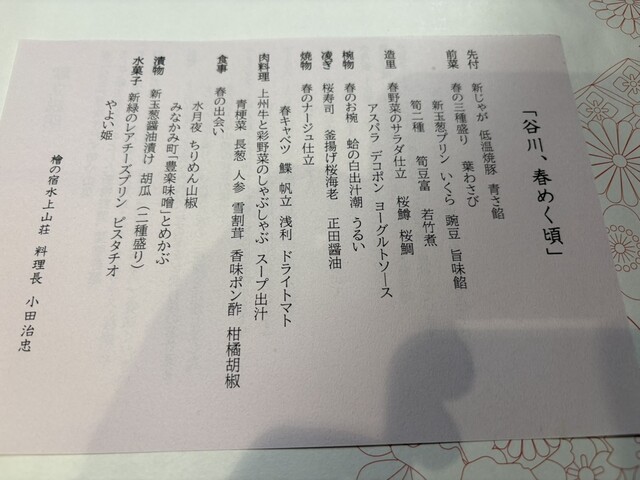 「谷川、春めく頃」
先付 新じゃが 低温焼豚 青さ餡
前菜 春の三種盛り 葉わさび
新玉葱プリン いくら 豌豆 旨味餡
筍二種 筍豆富 若竹煮
造里 春野菜のサラダ仕立 桜鱒 桜鯛
アスパラ デコポン ヨーグルトソース
椀物 春のお椀 蛤の白出汁潮 うるい
凌ぎ 桜寿司 釜揚げ桜海老 正田醤油
焼物 春のナージュ仕立
春キャベツ 鰈 帆立 浅利 ドライトマト
肉料理 上州牛と彩野菜のしゃぶしゃぶ スープ出汁
青梗菜 長葱 人参 雪割茸 香味ポン酢 柑橘胡椒
食事 春の出会い
水月夜 ちりめん山椒
みなかみ町「豊楽味噌」とめかぶ
漬物 新玉葱醤油漬け 胡瓜(二種盛り)
水菓子 新緑のレアチーズプリン ピスタチオ
やよい姫
檜の宿水上山荘 料理長 小田治忠